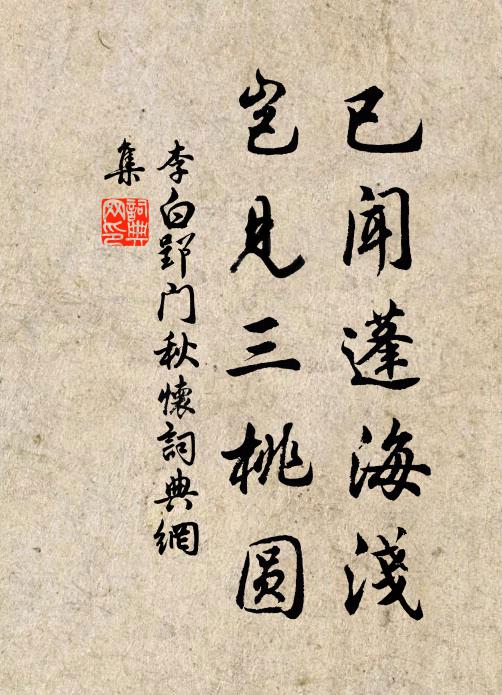 已闻蓬海浅
岂见三桃圆
李白郢门秋懷詞典網
集
詞典
网印